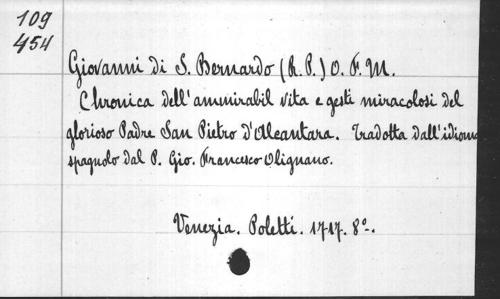 109
454
Giovanni di S. Bernardo (R. P.) O. F. M.
Chronica dell'ammirabil vita e gesti miracolosi del
glorioso Padre San Pietro d'Alcantara. Tradotta dall'idioma
spagnolo dal P. Gio. Francesco Olignano.
Venezia. Poletti. 1717. 8º.